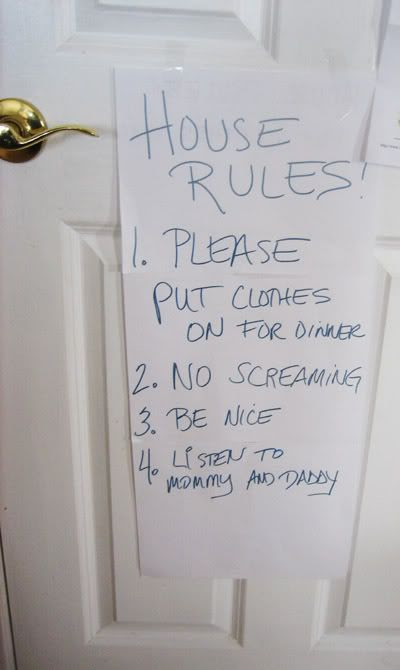 HOUSE
RULES!
1. PLEASE
PUT CLOTHES
ON FOR DINNER
2. NO SCREAMING
3. BE NICE
4. LISTEN TO
MOMMY AND DADDY